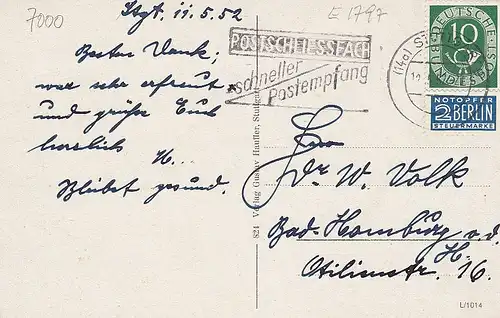 7000
Stgt. 11.5.52
E 1797
Besten Dank;
war sehr erfreut
und grüße Euch
herzlich
H...
Bleibet gesund.
POSTSCHLIESSFACH
schneller
Postempfang
(14a) ST
DEUTSCHE BUNDESPOST
10
NOTOPFER
2 BERLIN
STEUERMARKE
Herrn
Dr. W. Volk
Bad-Homburg v.d.
H.
Ottilienstr. 16.
824 Verlag Gustav Haufler, Stuttgart
L/1014